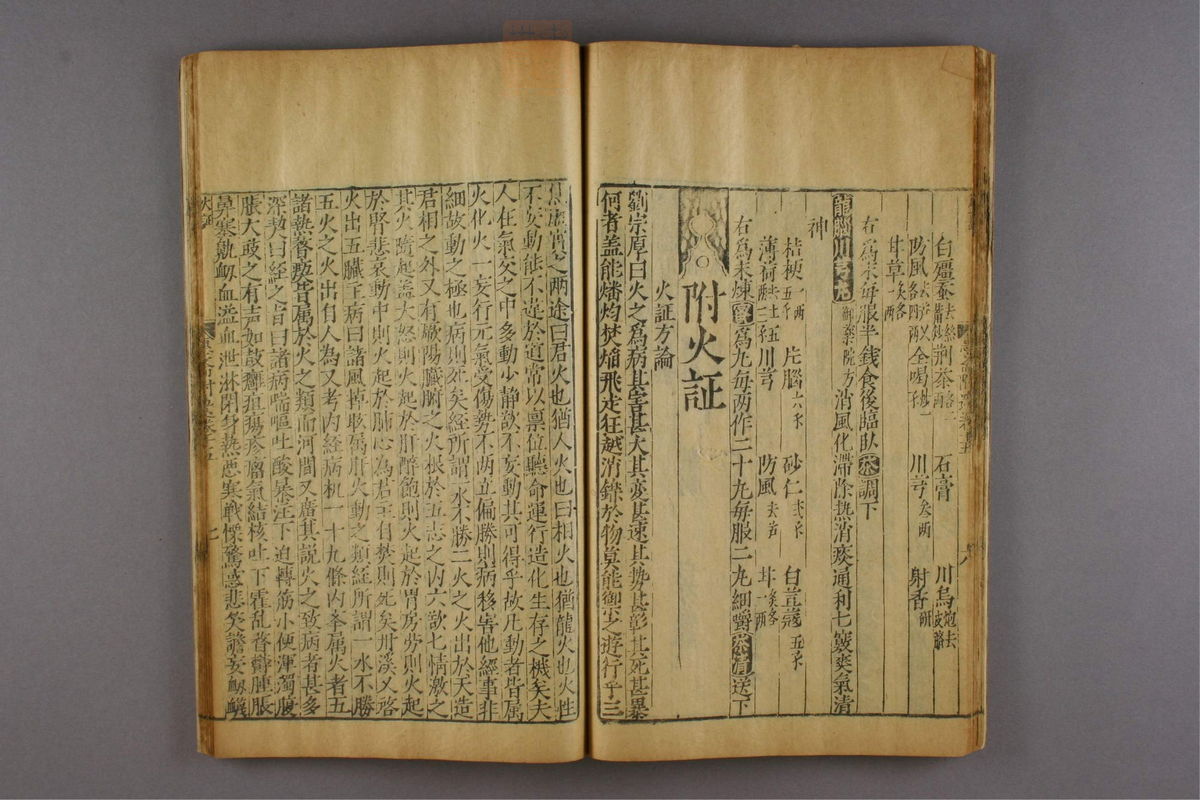 白殭蚕 荊芥 石膏 川烏
防風 全蝎 川芎 射香
甘草
右為末每服半錢食後臨臥茶調下
龍腦川芎丸 御藥院方 消風化滯除熱消痰通利七竅爽氣清
神
桔梗 片腦 砂仁 白荳蔲
薄荷 川芎 防風
右為末煉蜜為丸每两作二十丸每服二丸細嚼茶清送下
附火証
火証方論
劉宗厚曰火之為病其害甚大其变甚速其势甚彰其死甚暴
何者盖能燔灼焚焰飛走狂越消鑠於物莫能禦之遊行乎三
焦虛實之两途曰君火也猶人火也曰相火也猶龍火也火性
不妄動能不违於道常以禀位聽命運行造化生存之機矣夫
人在氣交之中多動少静欲不妄動其可得乎故凡動者皆属
火化火一妄行元氣受傷勢不两立偏勝則病移害他經事非
細故動之極也病則死矣經所謂一水不勝二火之火出於天造
君相之外又有厥陽臟腑之火根於五志之内六欲七情激之
其火隨起盖大怒則火起於肝醉飽則火起於胃房劳則火起
於腎悲哀動中則火起於肺心為君主自焚則死矣丹溪又啓
火出五臟主病曰諸風掉眩属肝火動之類經所謂一水不勝
五火之火出自人為又考内經病机一十九條内举属火者五
諸热瞀瘛皆属於火之類而河間又廣其説火之致病者甚多
深契曰經之旨曰諸病喘嘔吐酸暴注下迫轉筋小便渾濁腹
脹大鼓之有声如鼓癰疽瘍疹瘤氣結核吐下霍乱瞀鬱腫脹
鼻塞鼽衂血溢血泄淋閉身热恶寒戰慄驚惑悲笑譫妄衂衊
火証